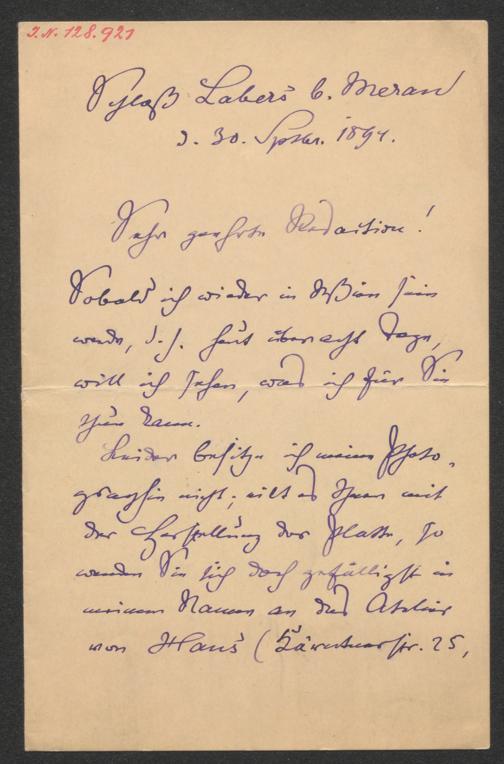 J.N. 128.921
Schloß Labers b. Meran
d. 30. Septbr. 1894.
Sehr geehrte Redaction!
Sobald ich wieder in Wien sein
werde, d. h. heut über acht Tage,
will ich sehen, was ich für Sie
thun kann.
Leider besitze ich meine Photo-
graphie nicht; eilt es Ihnen mit
der Herstellung der Platte, so
wenden Sie sich doch gefälligst in
meinem Namen an das Atelier
von Hans (Kärntnerstr. 25,